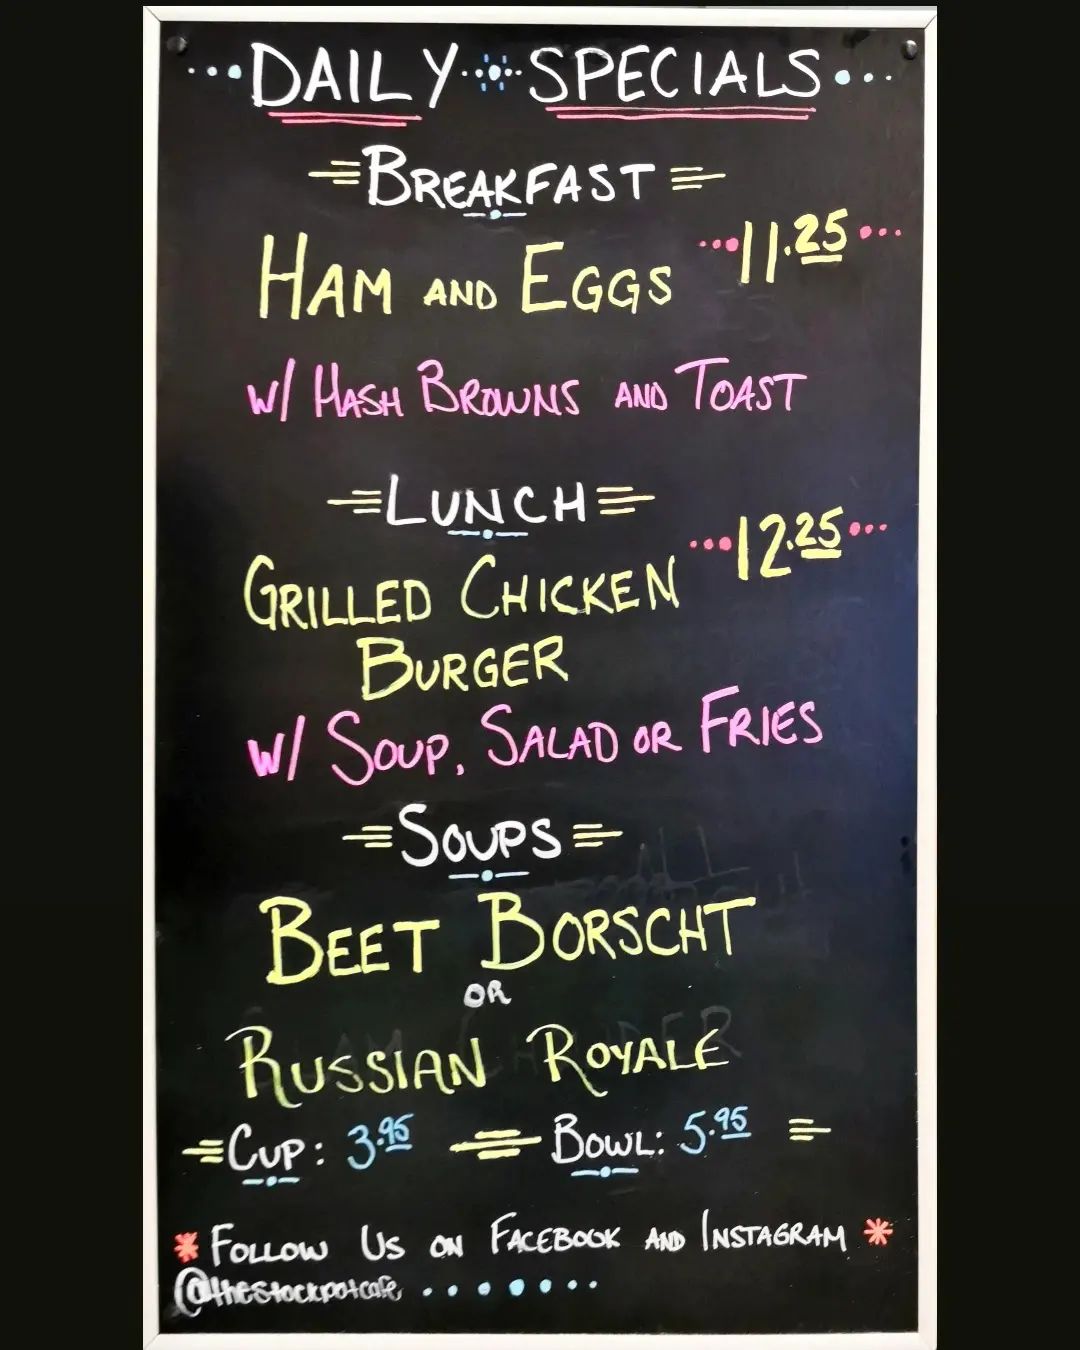 DAILY SPECIALS
BREAKFAST
HAM AND EGGS 11.25
W/ HASH BROWNS AND TOAST
LUNCH
GRILLED CHICKEN 12.25
BURGER
W/ SOUP, SALAD OR FRIES
SOUPS
BEET BORSCHT
OR
RUSSIAN ROYALE
CUP: 3.95 BOWL: 5.95
* FOLLOW US ON FACEBOOK AND INSTAGRAM *
@thestockpotcafe